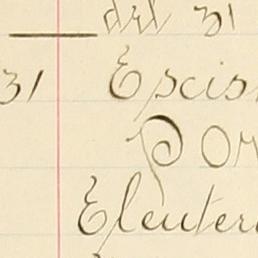 del 31
31 Escis
Por
Eleuter